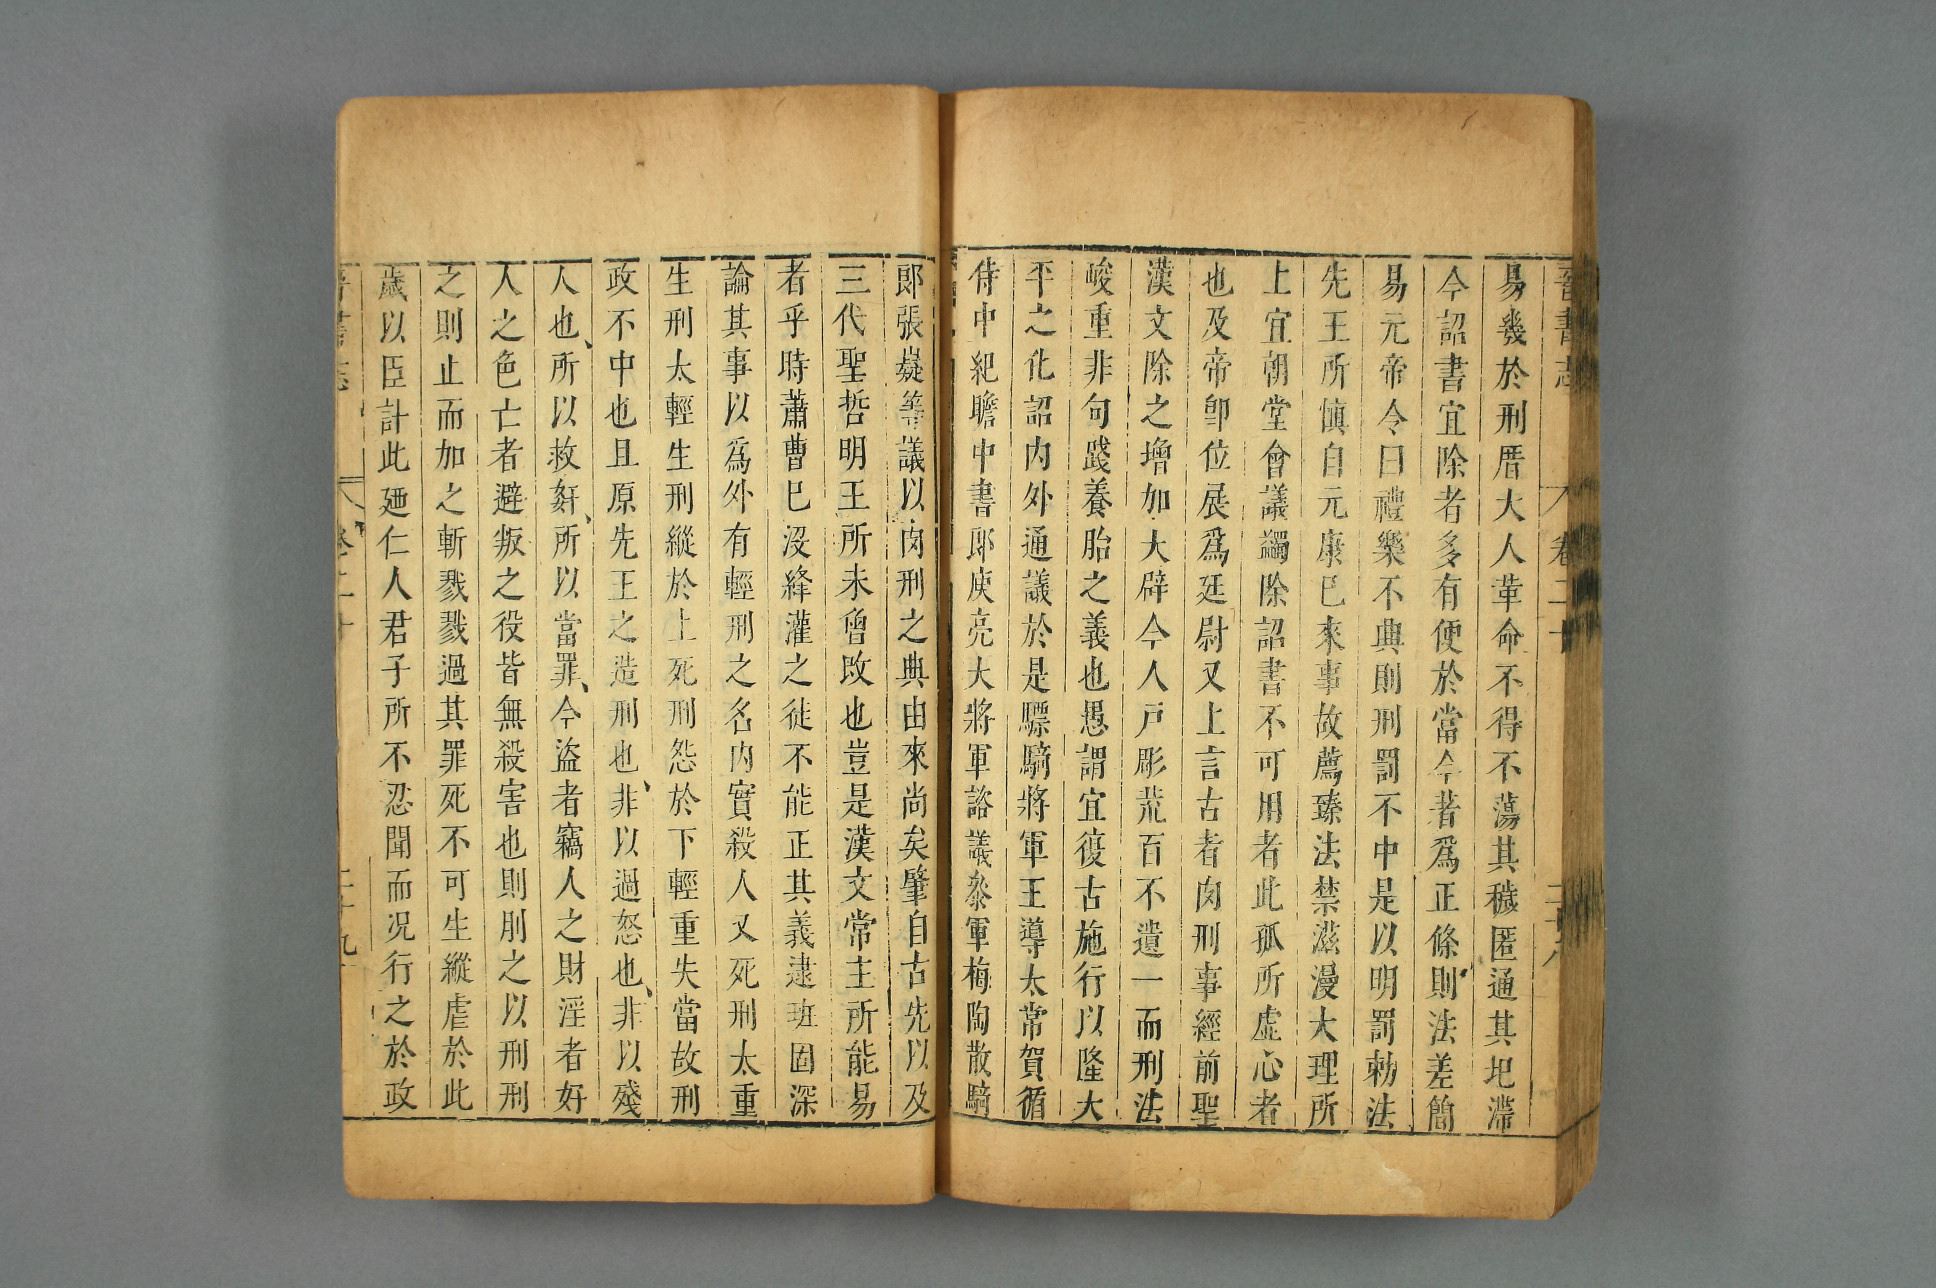 晉書志 卷二十 二十八
易幾於刑厝大人革命不得不蕩其穢匿通其圯滯
今詔書宜除者多有便於當今著爲正條則法差簡
易元帝令曰禮樂不興則刑罰不中是以明罰勑法
先王所慎自元康已來事故薦臻法禁滋漫大理所
上宜朝堂會議蠲除詔書不可用者此孤所虛心者
也及帝卽位展爲廷尉又上言古者肉刑事經前聖
漢文除之增加大辟今人戸彫荒百不遺一而刑法
峻重非句踐養胎之義也愚謂宜復古施行以隆大
平之化詔内外通議於是驃騎將軍王導太常賀循
侍中紀瞻中書郎庾亮大將軍諮議叅軍梅陶散騎
郎張嶷等議以肉刑之典由來尚矣肇自古先以及
三代聖哲明王所未曾改也豈是漢文常主所能易
者乎時蕭曹已沒絳灌之徒不能正其義逮班固深
論其事以爲外有輕刑之名内實殺人又死刑太重
生刑太輕生刑縱於上死刑怨於下輕重失當故刑
政不中也且原先王之造刑也、非以過怒也、非以殘
人也、所以救姧、所以當罪、今盜者竊人之財淫者好
人之色亡者避叛之役皆無殺害也則刖之以刑刑
之則止而加之斬戮戮過其罪死不可生縱虐於此
歲以臣計此廼仁人君子所不忍聞而况行之於政
晉書志 卷二十 二十九